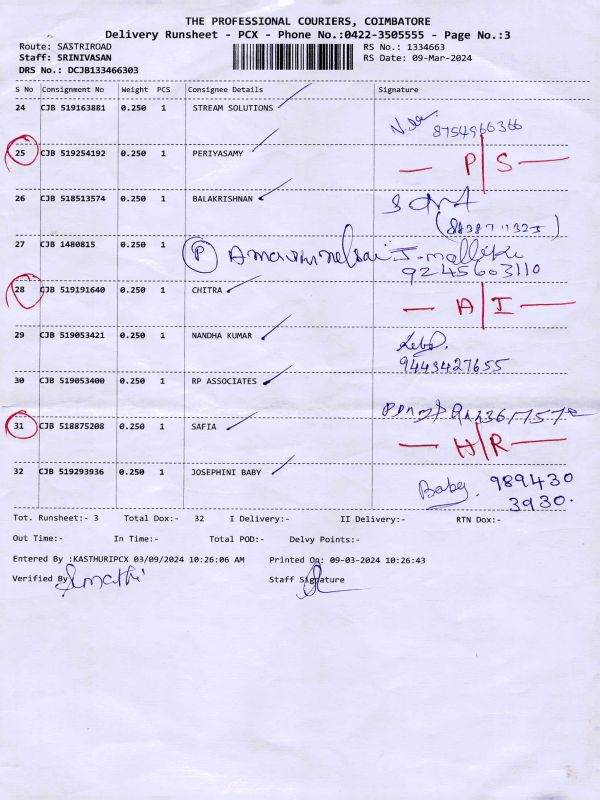 THE PROFESSIONAL COURIERS, COIMBATORE
Delivery Runsheet - PCX - Phone No.:0422-3505555 - Page No.:3
Route: SASTRIROAD RS No.: 1334663
Staff: SRINIVASAN RS Date: 09-Mar-2024
DRS No.: DCJB133466303
S No Consignment No Weight PCS Consignee Details Signature
24 CJB 519163881 0.250 1 STREAM SOLUTIONS
8754966366
25 CJB 519254192 0.250 1 PERIYASAMY P/S
26 CJB 518513574 0.250 1 BALAKRISHNAN
27 CJB 1480815 0.250 1 P
9245603110
28 CJB 519191640 0.250 1 CHITRA A/I
29 CJB 519053421 0.250 1 NANDHA KUMAR
9443427655
30 CJB 519053400 0.250 1 RP ASSOCIATES
31 CJB 518875208 0.250 1 SAFIA H/R
32 CJB 519293936 0.250 1 JOSEPHINI BABY Baby. 989430
3930.
Tot. Runsheet:- 3 Total Dox:- 32 I Delivery:- II Delivery:- RTN Dox:-
Out Time:- In Time:- Total POD:- Delvy Points:-
Entered By :KASTHURIPCX 03/09/2024 10:26:06 AM Printed On: 09-03-2024 10:26:43
Verified By Staff Signature